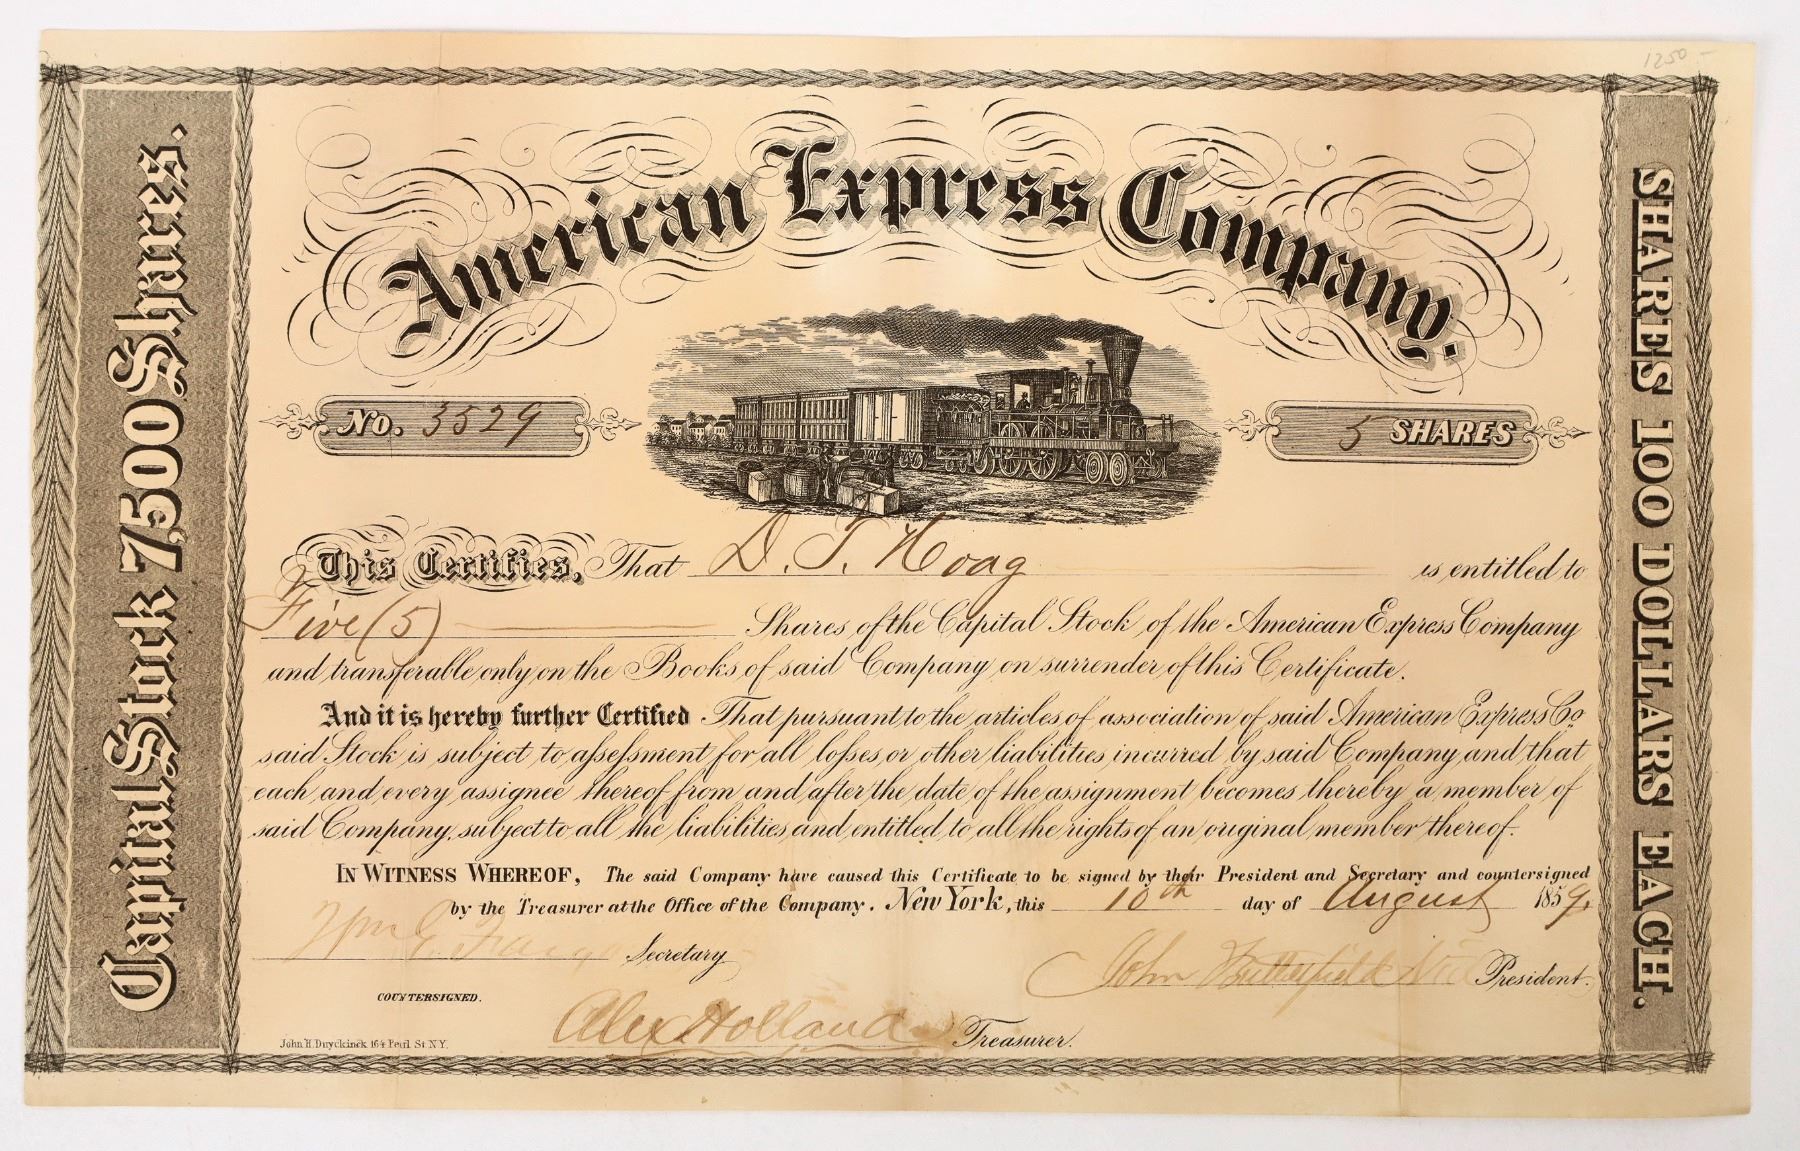 1250.-
American Express Company.
No. 3529
5 SHARES
This Certifies, That D. T. Hoag is entitled to
Five (5) Shares of the Capital Stock of the American Express Company
and transferable only on the Books of said Company on surrender of this Certificate.
And it is hereby further Certified That pursuant to the articles of association of said American Express Co
said Stock is subject to assessment for all losses or other liabilities incurred by said Company and that
each and every assignee thereof from and after the date of the assignment becomes thereby a member of
said Company, subject to all the liabilities and entitled to all the rights of an original member thereof.
IN WITNESS WHEREOF, The said Company have caused this Certificate to be signed by their President and Secretary and countersigned
by the Treasurer at the Office of the Company. New York, this 10th day of August 1859.
Wm G. Fargo Secretary
John Butterfield President.
COUNTERSIGNED.
Alex Holland Treasurer.
John H. Duyckinck 164 Pearl St. N.Y.
Capital Stock 7,500 Shares.
SHARES 100 DOLLARS EACH.